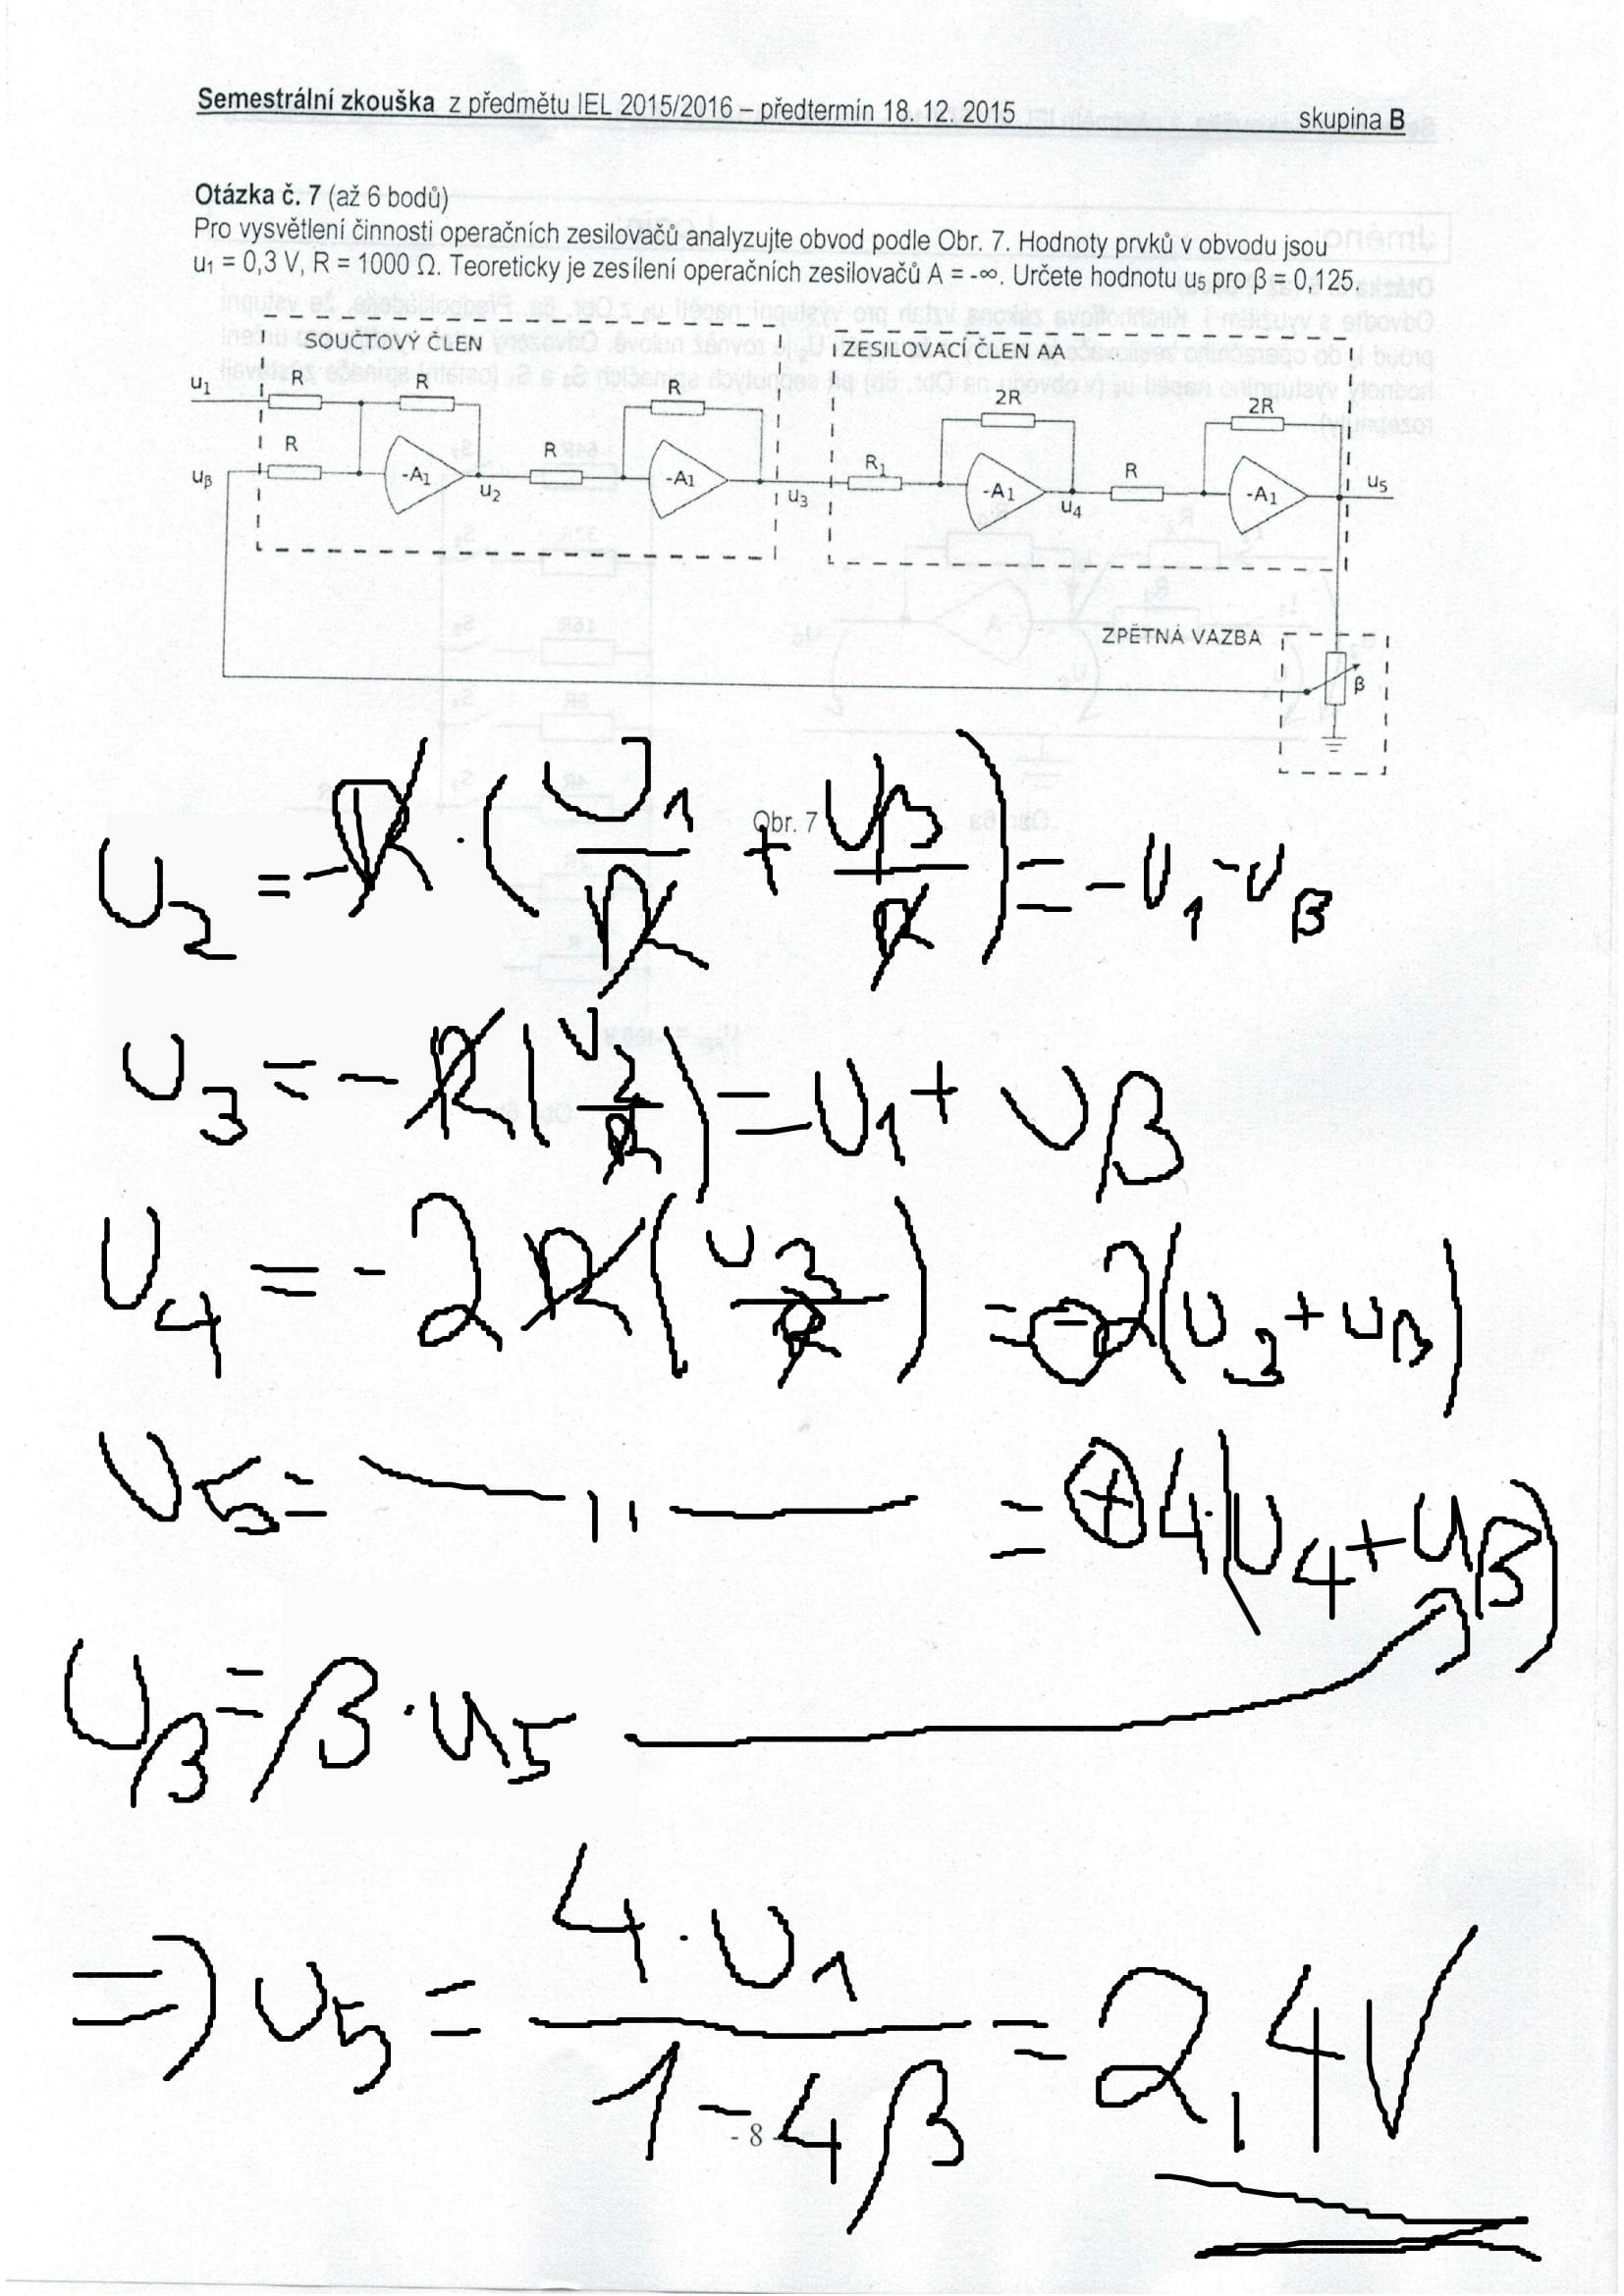 Semestrální zkouška z předmětu IEL 2015/2016 – předtermín 18. 12. 2015 skupina B
Otázka č. 7 (až 6 bodů)
Pro vysvětlení činnosti operačních zesilovačů analyzujte obvod podle Obr. 7. Hodnoty prvků v obvodu jsou
u₁ = 0,3 V, R = 1000 Ω. Teoreticky je zesílení operačních zesilovačů A = -∞. Určete hodnotu u₅ pro β = 0,125.
SOUČTOVÝ ČLEN ZESILOVACÍ ČLEN AA
u₁ R R R 2R 2R
uβ R -A₁ u₂ R -A₁ u₃ R₁ -A₁ u₄ R -A₁ u₅
ZPĚTNÁ VAZBA
β
Obr. 7
U₂ = -R · (U₁/R + Uβ/R) = -U₁ - Uβ
U₃ = -R(U₂/R) = U₁ + Uβ
U₄ = -2R(U₃/R) = -2(U₃ + Uβ)
U₅ = —— ıı —— = +4·(U₄ + Uβ)
Uβ = β · U₅
=> U₅ = 4·U₁ / 1-4β = 2,4V
- 8 -